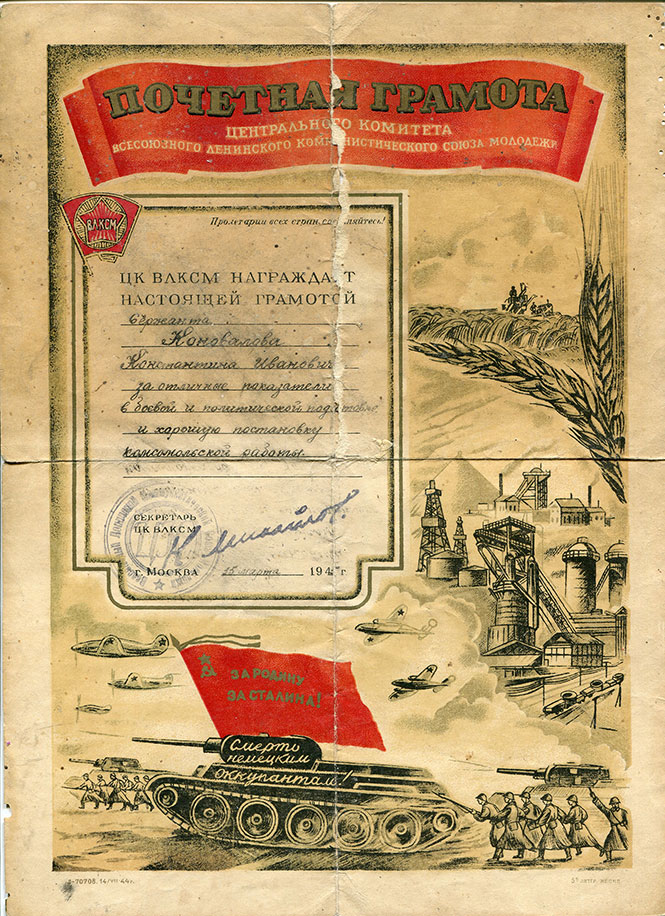 ПОЧЕТНАЯ ГРАМОТА
ЦЕНТРАЛЬНОГО КОМИТЕТА
ВСЕСОЮЗНОГО ЛЕНИНСКОГО КОММУНИСТИЧЕСКОГО СОЮЗА МОЛОДЕЖИ
ВЛКСМ
Пролетарии всех стран, соединяйтесь!
ЦК ВЛКСМ НАГРАЖДАЕТ
НАСТОЯЩЕЙ ГРАМОТОЙ
Сержанта
Коновалова
Константина Иванович
за отличные показатели
в боевой и политической подготовке
и хорошую постановку
комсомольской работы.
СЕКРЕТАРЬ
ЦК ВЛКСМ
Н Михайлов
г. МОСКВА 15 марта 194 г.
ЗА РОДИНУ
ЗА СТАЛИНА!
Смерть
немецким
оккупантам!